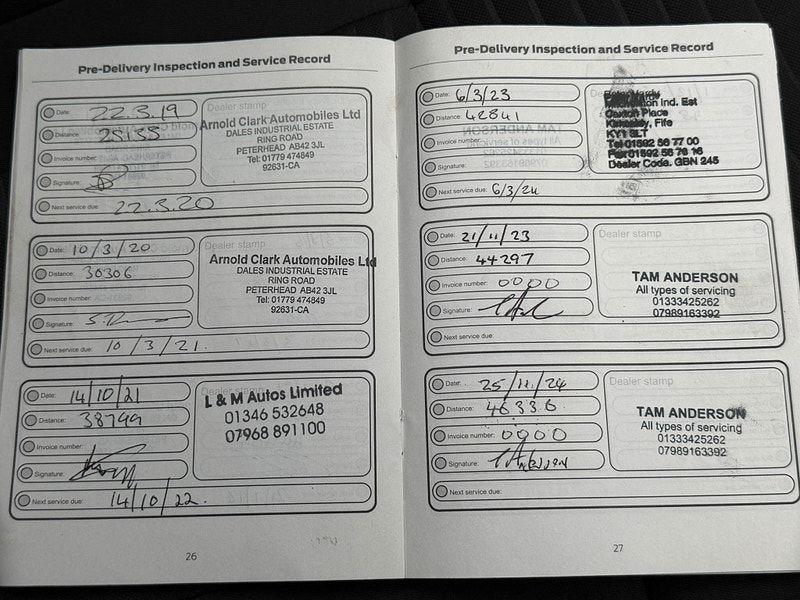 Pre-Delivery Inspection and Service Record
Date: 22.3.19
Distance:
Invoice number:
Signature:
Next service due: 22.3.20
Dealer stamp
Arnold Clark Automobiles Ltd
DALES INDUSTRIAL ESTATE
RING ROAD
PETERHEAD AB42 3JL
Tel: 01779 474849
92631-CA
Date: 10/3/20
Distance: 30306
Invoice number:
Signature:
Next service due: 10/3/21.
Dealer stamp
Arnold Clark Automobiles Ltd
DALES INDUSTRIAL ESTATE
RING ROAD
PETERHEAD AB42 3JL
Tel: 01779 474849
92631-CA
Date: 14/10/21
Distance: 38799
Invoice number:
Signature:
Next service due: 14/10/22.
L & M Autos Limited
01346 532648
07968 891100
26
Pre-Delivery Inspection and Service Record
Date: 6/3/23
Distance: 42841
Invoice number:
Signature:
Next service due: 6/3/24
Ind. Est
Place
Fife
KY1 3LT
Dealer Code. GBN 245
Date: 21/11/23
Distance: 44297
Invoice number: 0000
Signature:
Next service due:
Dealer stamp
TAM ANDERSON
All types of servicing
01333425262
07989163392
Date: 25/11/24
Distance: 46336
Invoice number: 0000
Signature: T Anderson
Next service due:
Dealer stamp
TAM ANDERSON
All types of servicing
01333425262
07989163392
27